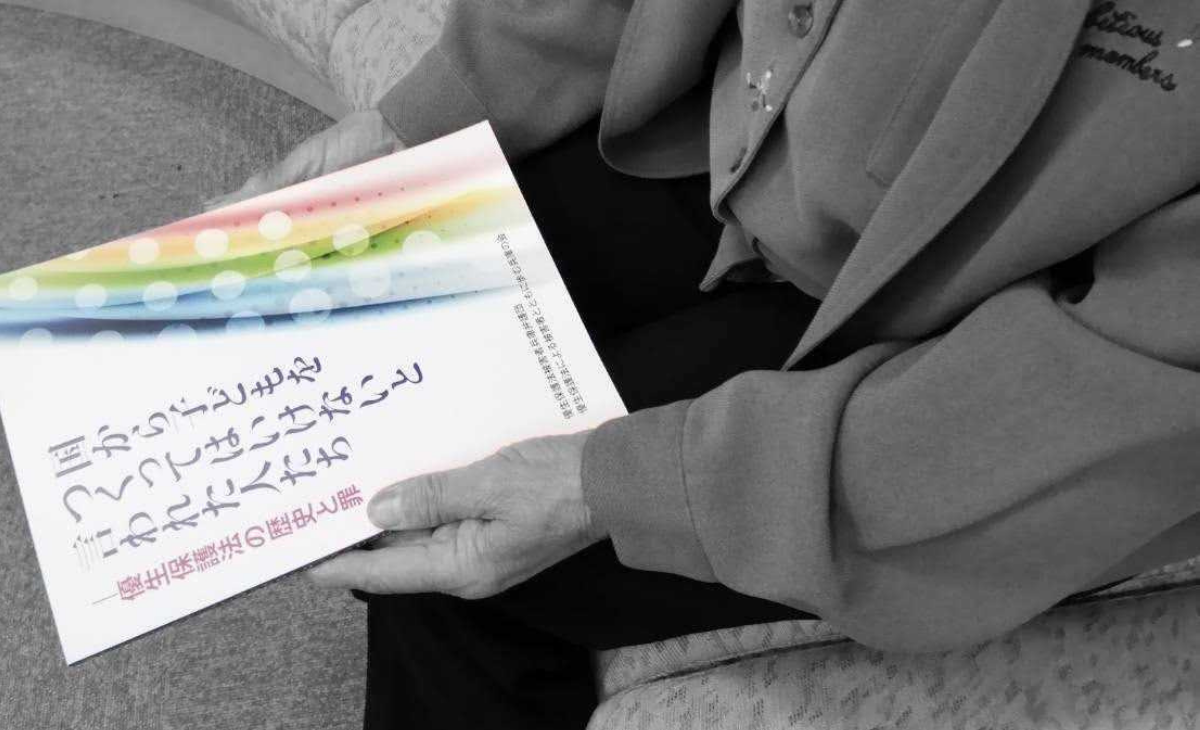 国から子どもを
つくってはいけないと
言われた人たち
―優生保護法の歴史と罪
優生保護法被害者兵庫弁護団
優生保護法による被害者とともに歩む兵庫の会
members